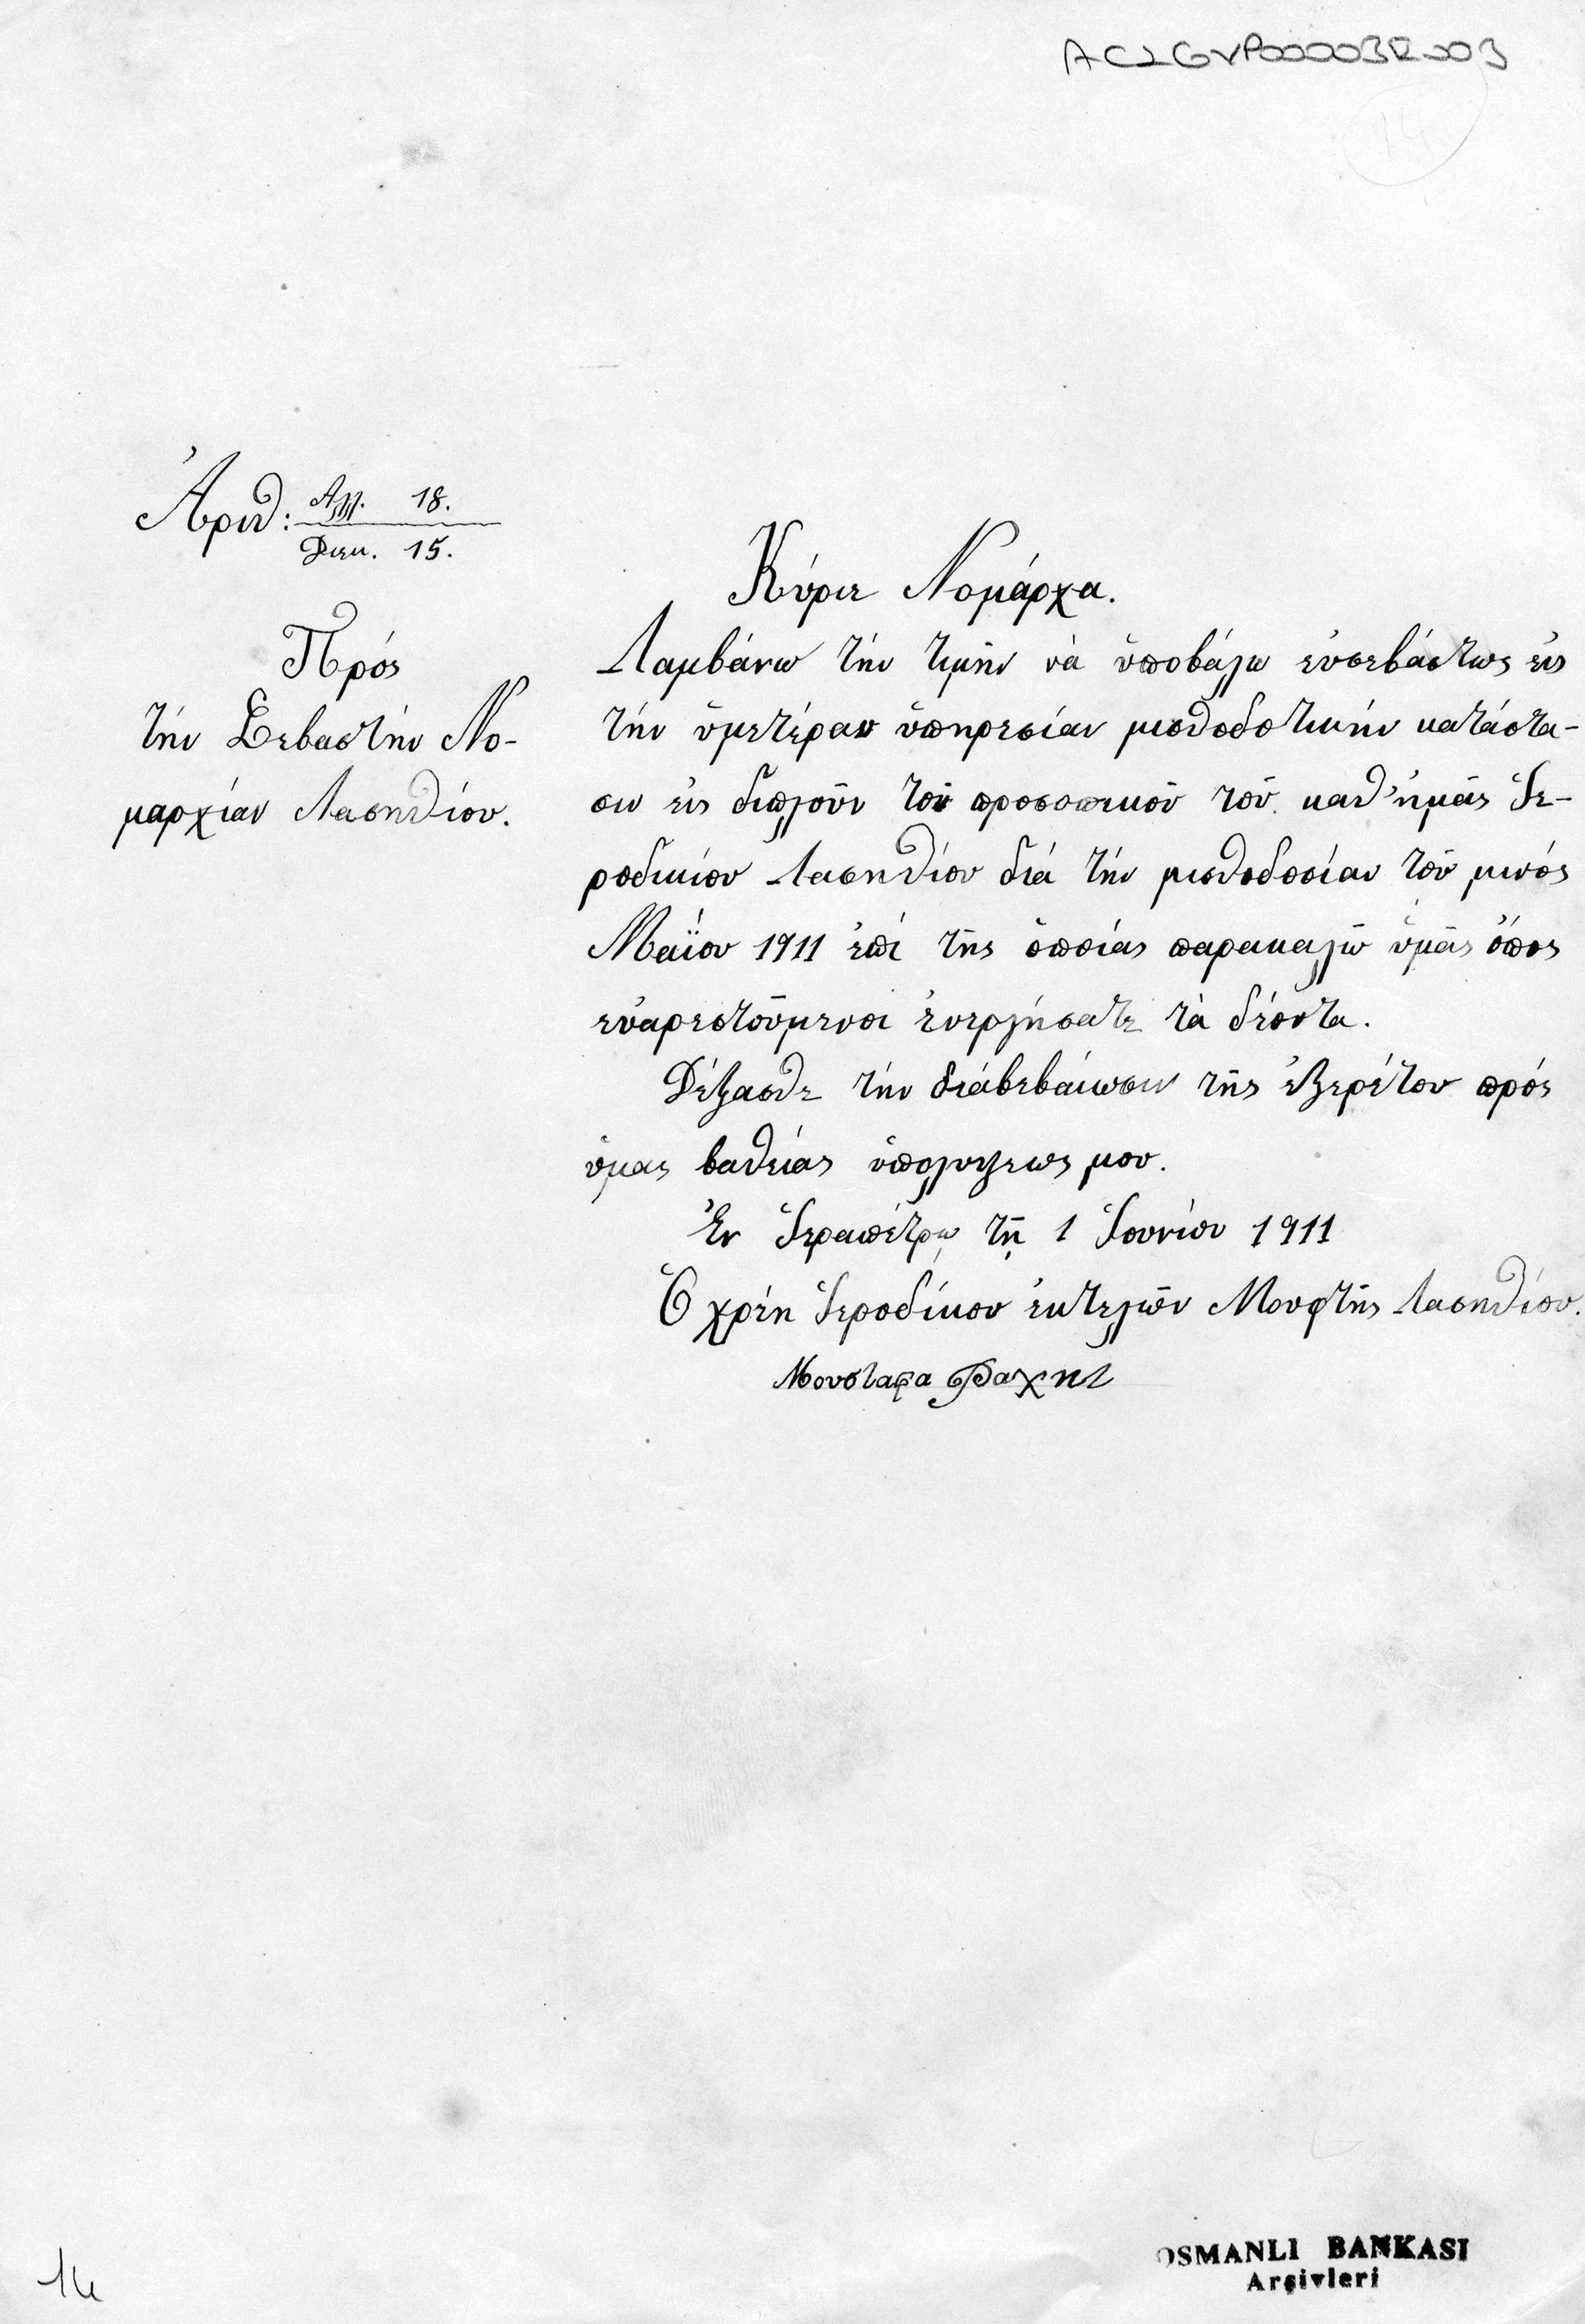 AC2GVP00003R003
14
Ἀριθ: Αλλ. 18.
Διεκ. 15.
Κύριε Νομάρχα.
Πρός
τήν Σεβαστήν Νο-
μαρχίαν Λασηθίου.
Λαμβάνω τήν τιμήν νὰ ὑποβάλω εὐσεβάστως εἰς
τήν ὑμετέραν ὑπηρεσίαν μισθοδοτικήν κατάστα-
σιν εἰς διπλοῦν τοῦ προσοπικοῦ τοῦ καθ'ἡμᾶς Ἱε-
ροδικίου Λασηθίου διά τήν μισθοδοσίαν τοῦ μινός
Μαΐου 1911 ἐπί τῆς ὁποίας παρακαλῶ ὑμᾶς ὅπος
εὐαρεστούμενοι ἐνεργήσατε τὰ δέοντα.
Δέξασθε τήν διάβεβαίωσιν τῆς ἐξερέτου πρός
ὑμας βαθείας ὑπολυψεως μου.
Ἐν Ἱεραπέτρῳ τῇ 1 Ἰουνίου 1911
Ὁ χρέη Ἱεροδίκου ἐκτελῶν Μουφτῆς Λασηθίου.
Μουσταφα Ραχητ
14
OSMANLI BANKASI
Arşivleri